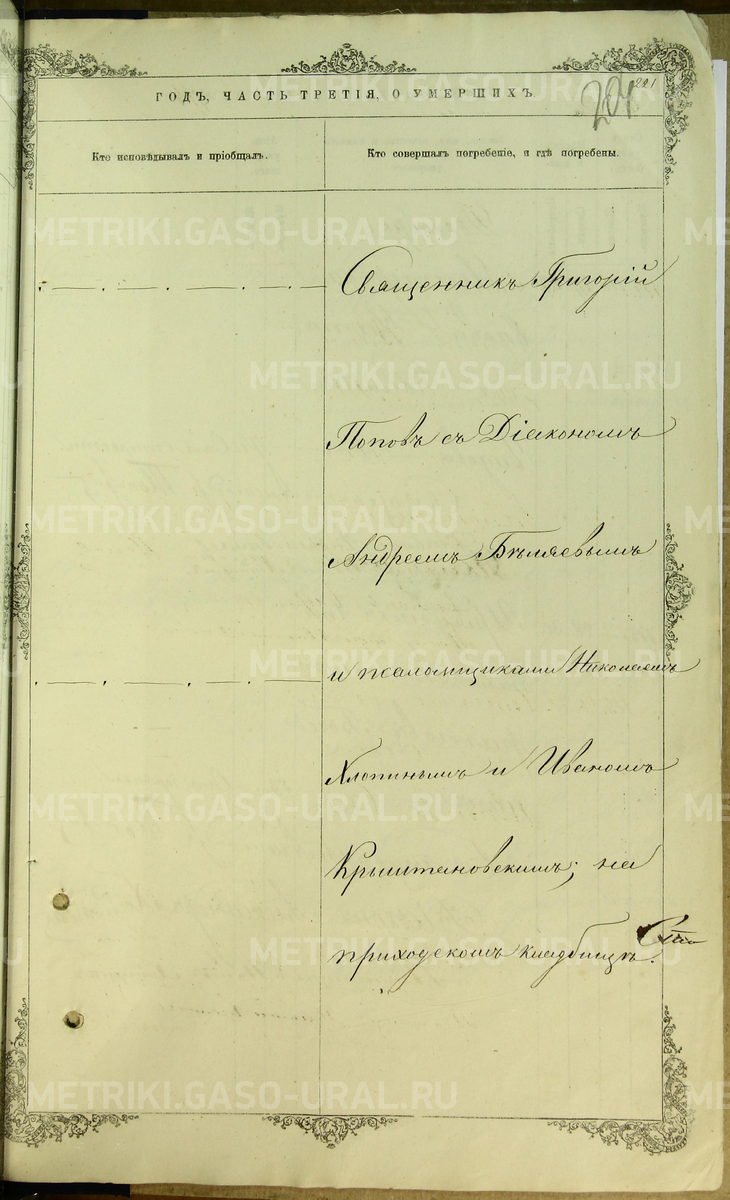 221
204
ГОДЪ, ЧАСТЬ ТРЕТІЯ, О УМЕРШИХЪ.
Кто исповѣдывалъ и пріобщалъ.
Кто совершалъ погребеніе, и гдѣ погребены.
Священникъ Григорій
Поповъ съ Діякономъ
Андреемъ Бѣляевымъ
и псаломщиками Николаемъ
Хлопинымъ и Иваномъ
Крыштановскимъ; на
приходскомъ кладбищѣ.
METRIKI.GASO-URAL.RU